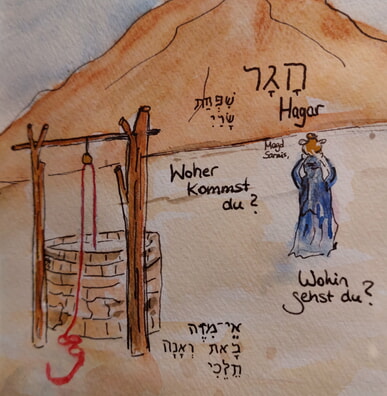 הָגָר
שִׁפְחַת
שָׂרַי
Hagar
Magd
Sarais,
Woher
kommst
du?
Wohin
gehst du?
אֵי־מִזֶּה
בָאת וְאָנָה
תֵלֵכִי